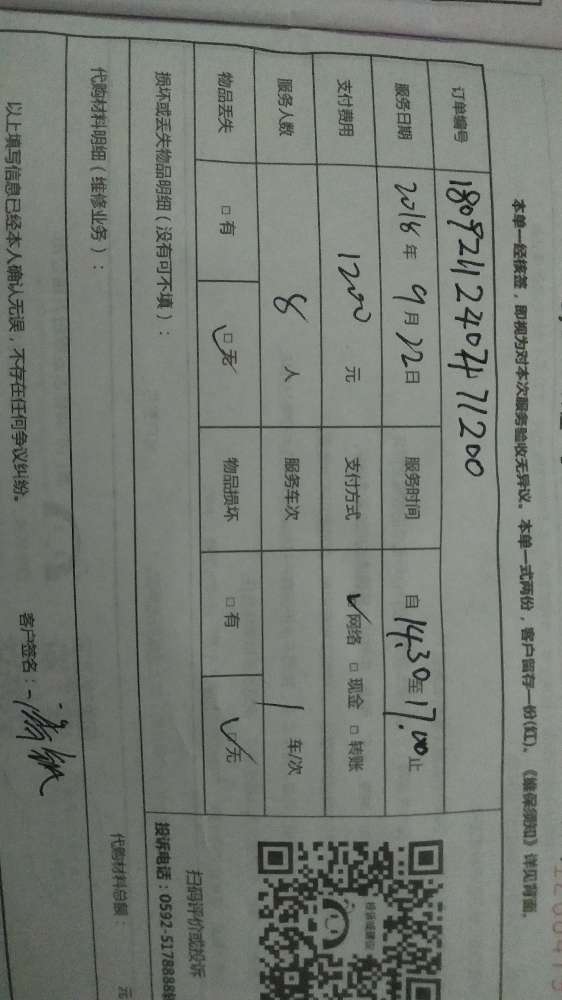 本单一经核签，即视为对本次服务验收无异议。本单一式两份，客户留存一份(红)。《维保须知》详见背面。
订单编号 180921124047471200
服务日期 2018年9月22日 服务时间 自14:30至17:00止
支付费用 1200元 支付方式 ✓网络 □现金 □转账
服务人数 8人 服务车次 1车/次
物品丢失 □有 ☑无 物品损坏 □有 ☑无
损坏或丢失物品明细（没有可不填）：
代购材料明细（维修业务）：
代购材料总额： 元
以上填写信息已经本人确认无误，不存在任何争议纠纷。
客户签名：
投诉或建议
扫码评价或投诉
投诉电话：0592-5178888